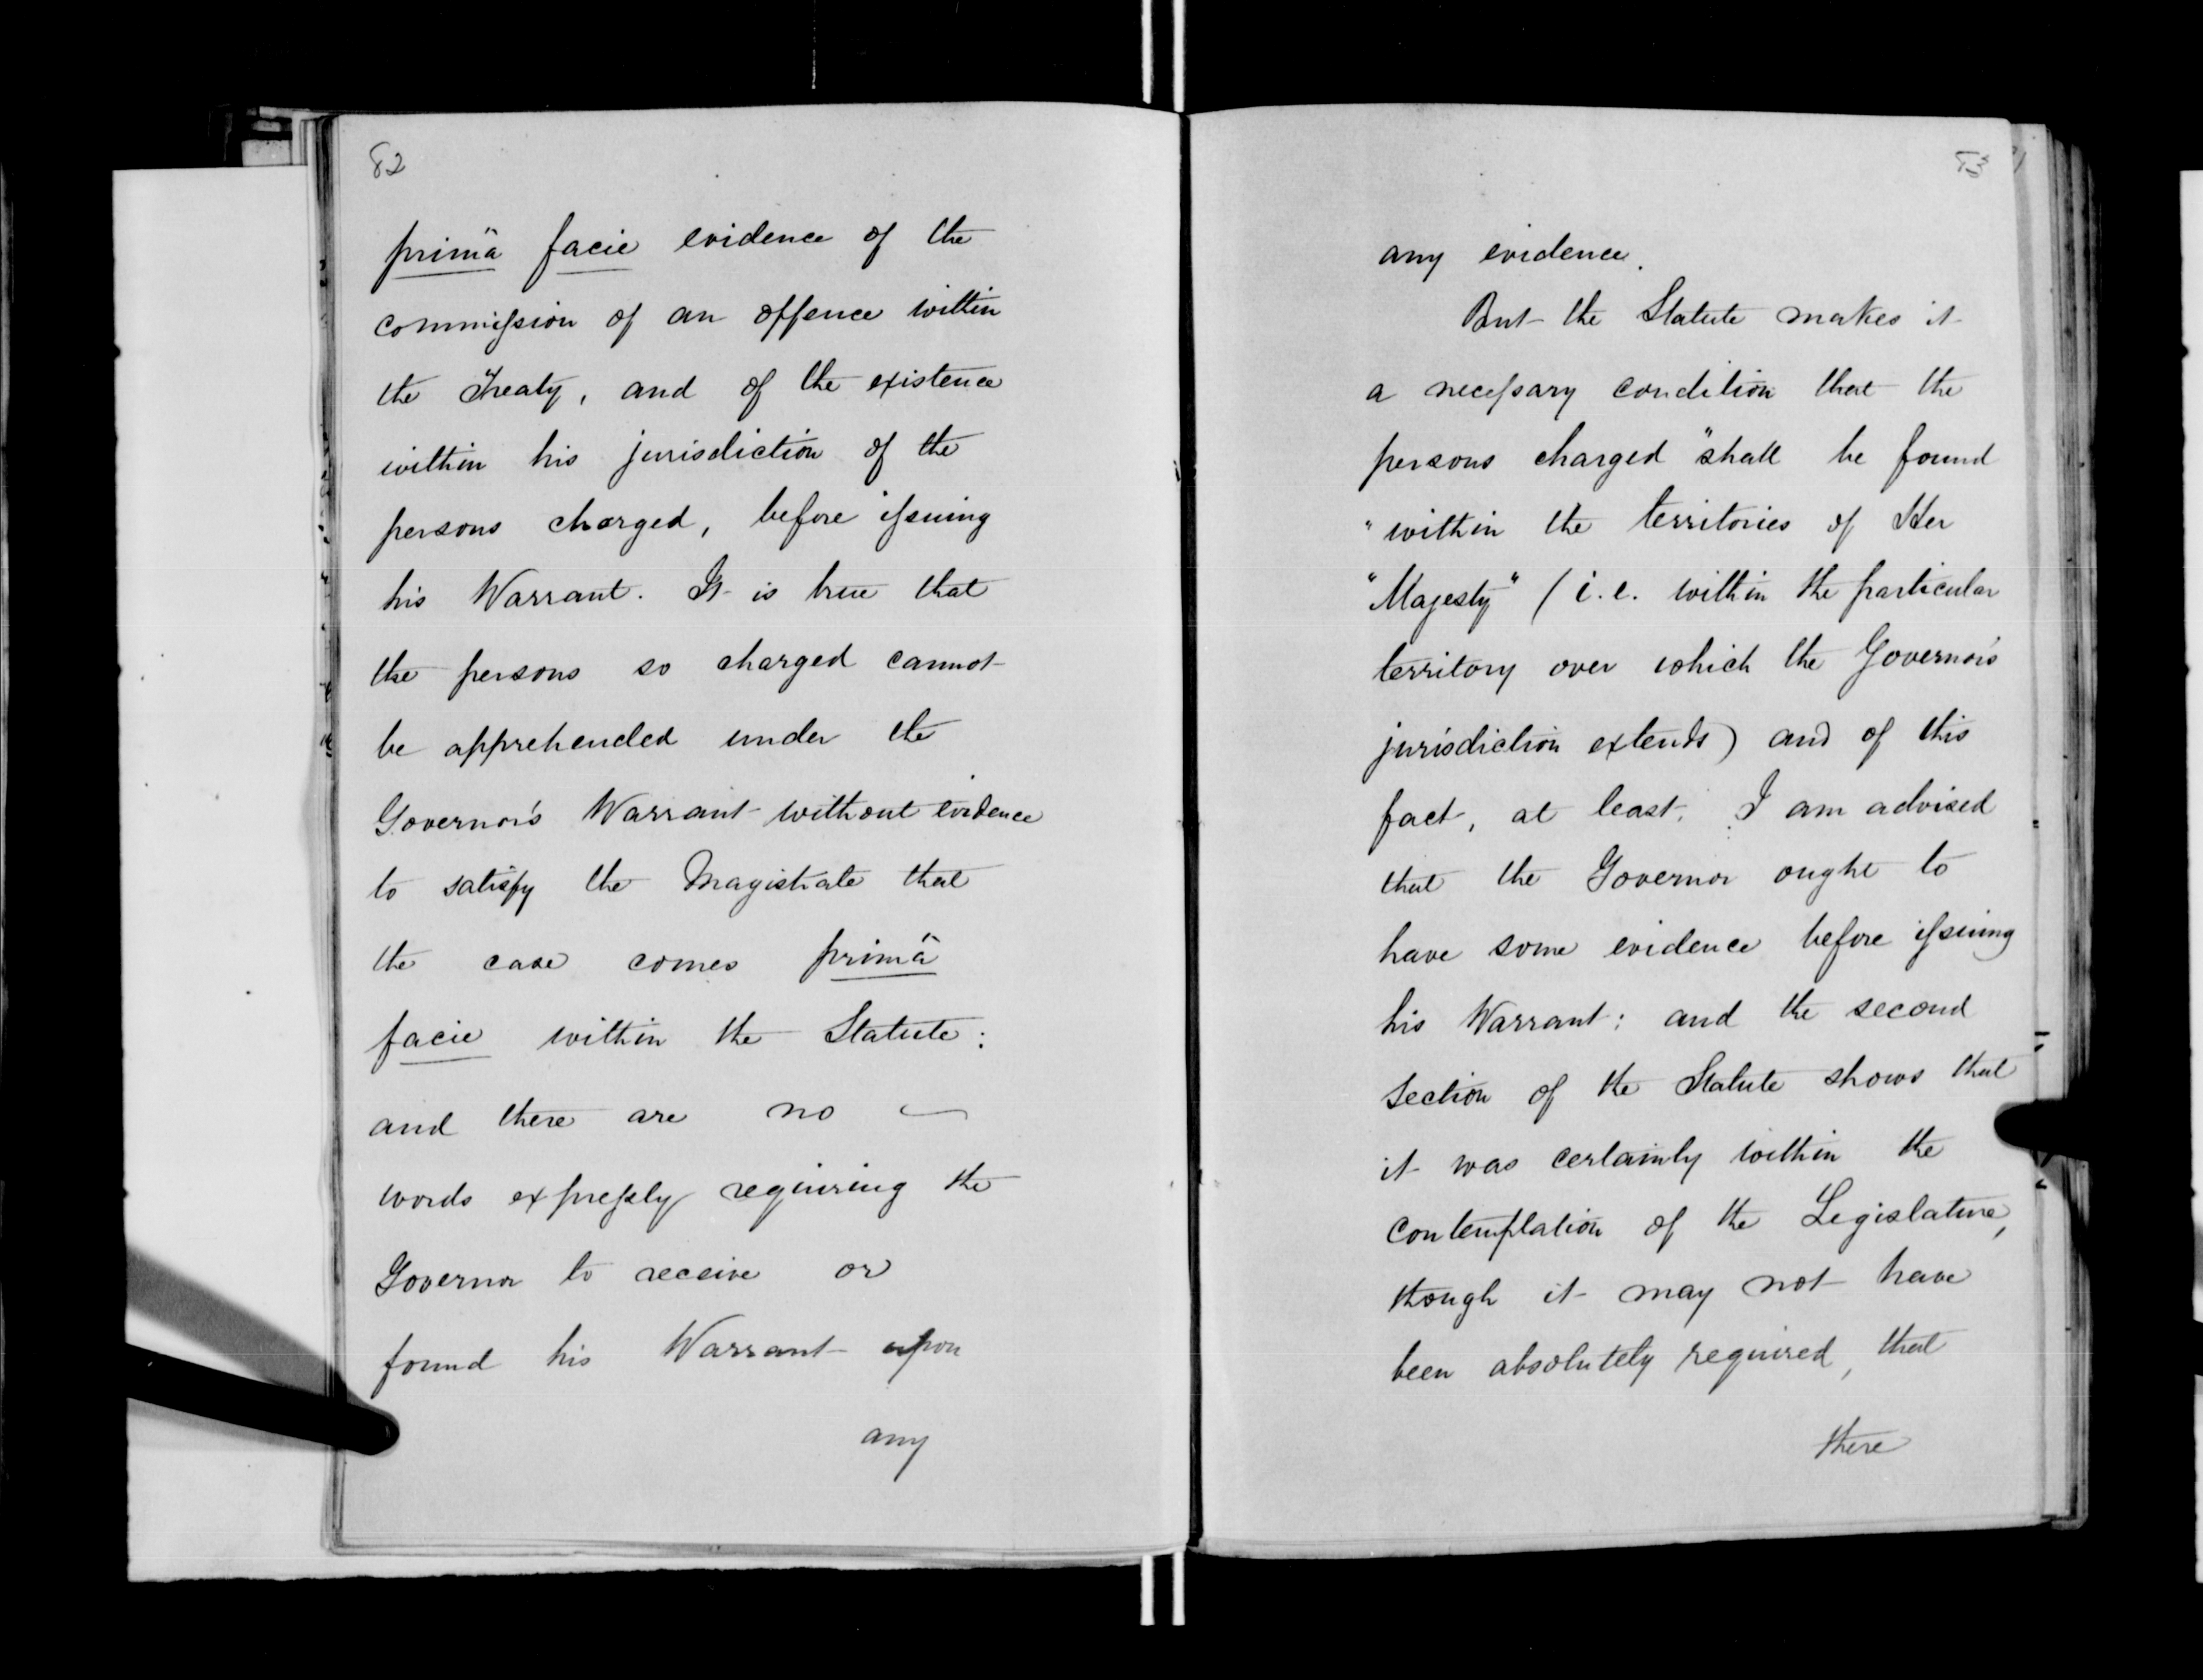 82
primâ facie evidence of the
commission of an offence within
the Treaty, and of the existence
within his jurisdiction of the
persons charged, before issuing
his Warrant. It is true that
the persons so charged cannot
be apprehended under the
Governor's Warrant without evidence
to satisfy the Magistrate that
the case comes primâ
facie within the Statute:
and there are no —
words expressly requiring the
Governor to receive or
found his Warrant upon
any
83
any evidence.
But the Statute makes it
a necessary condition that the
persons charged "shall be found
"within the territories of Her
"Majesty" (i.e. within the particular
territory over which the Governor's
jurisdiction extends) and of this
fact, at least, I am advised
that the Governor ought to
have some evidence before issuing
his Warrant: and the second
section of the Statute shows that
it was certainly within the
contemplation of the Legislature,
though it may not have
been absolutely required, that
there